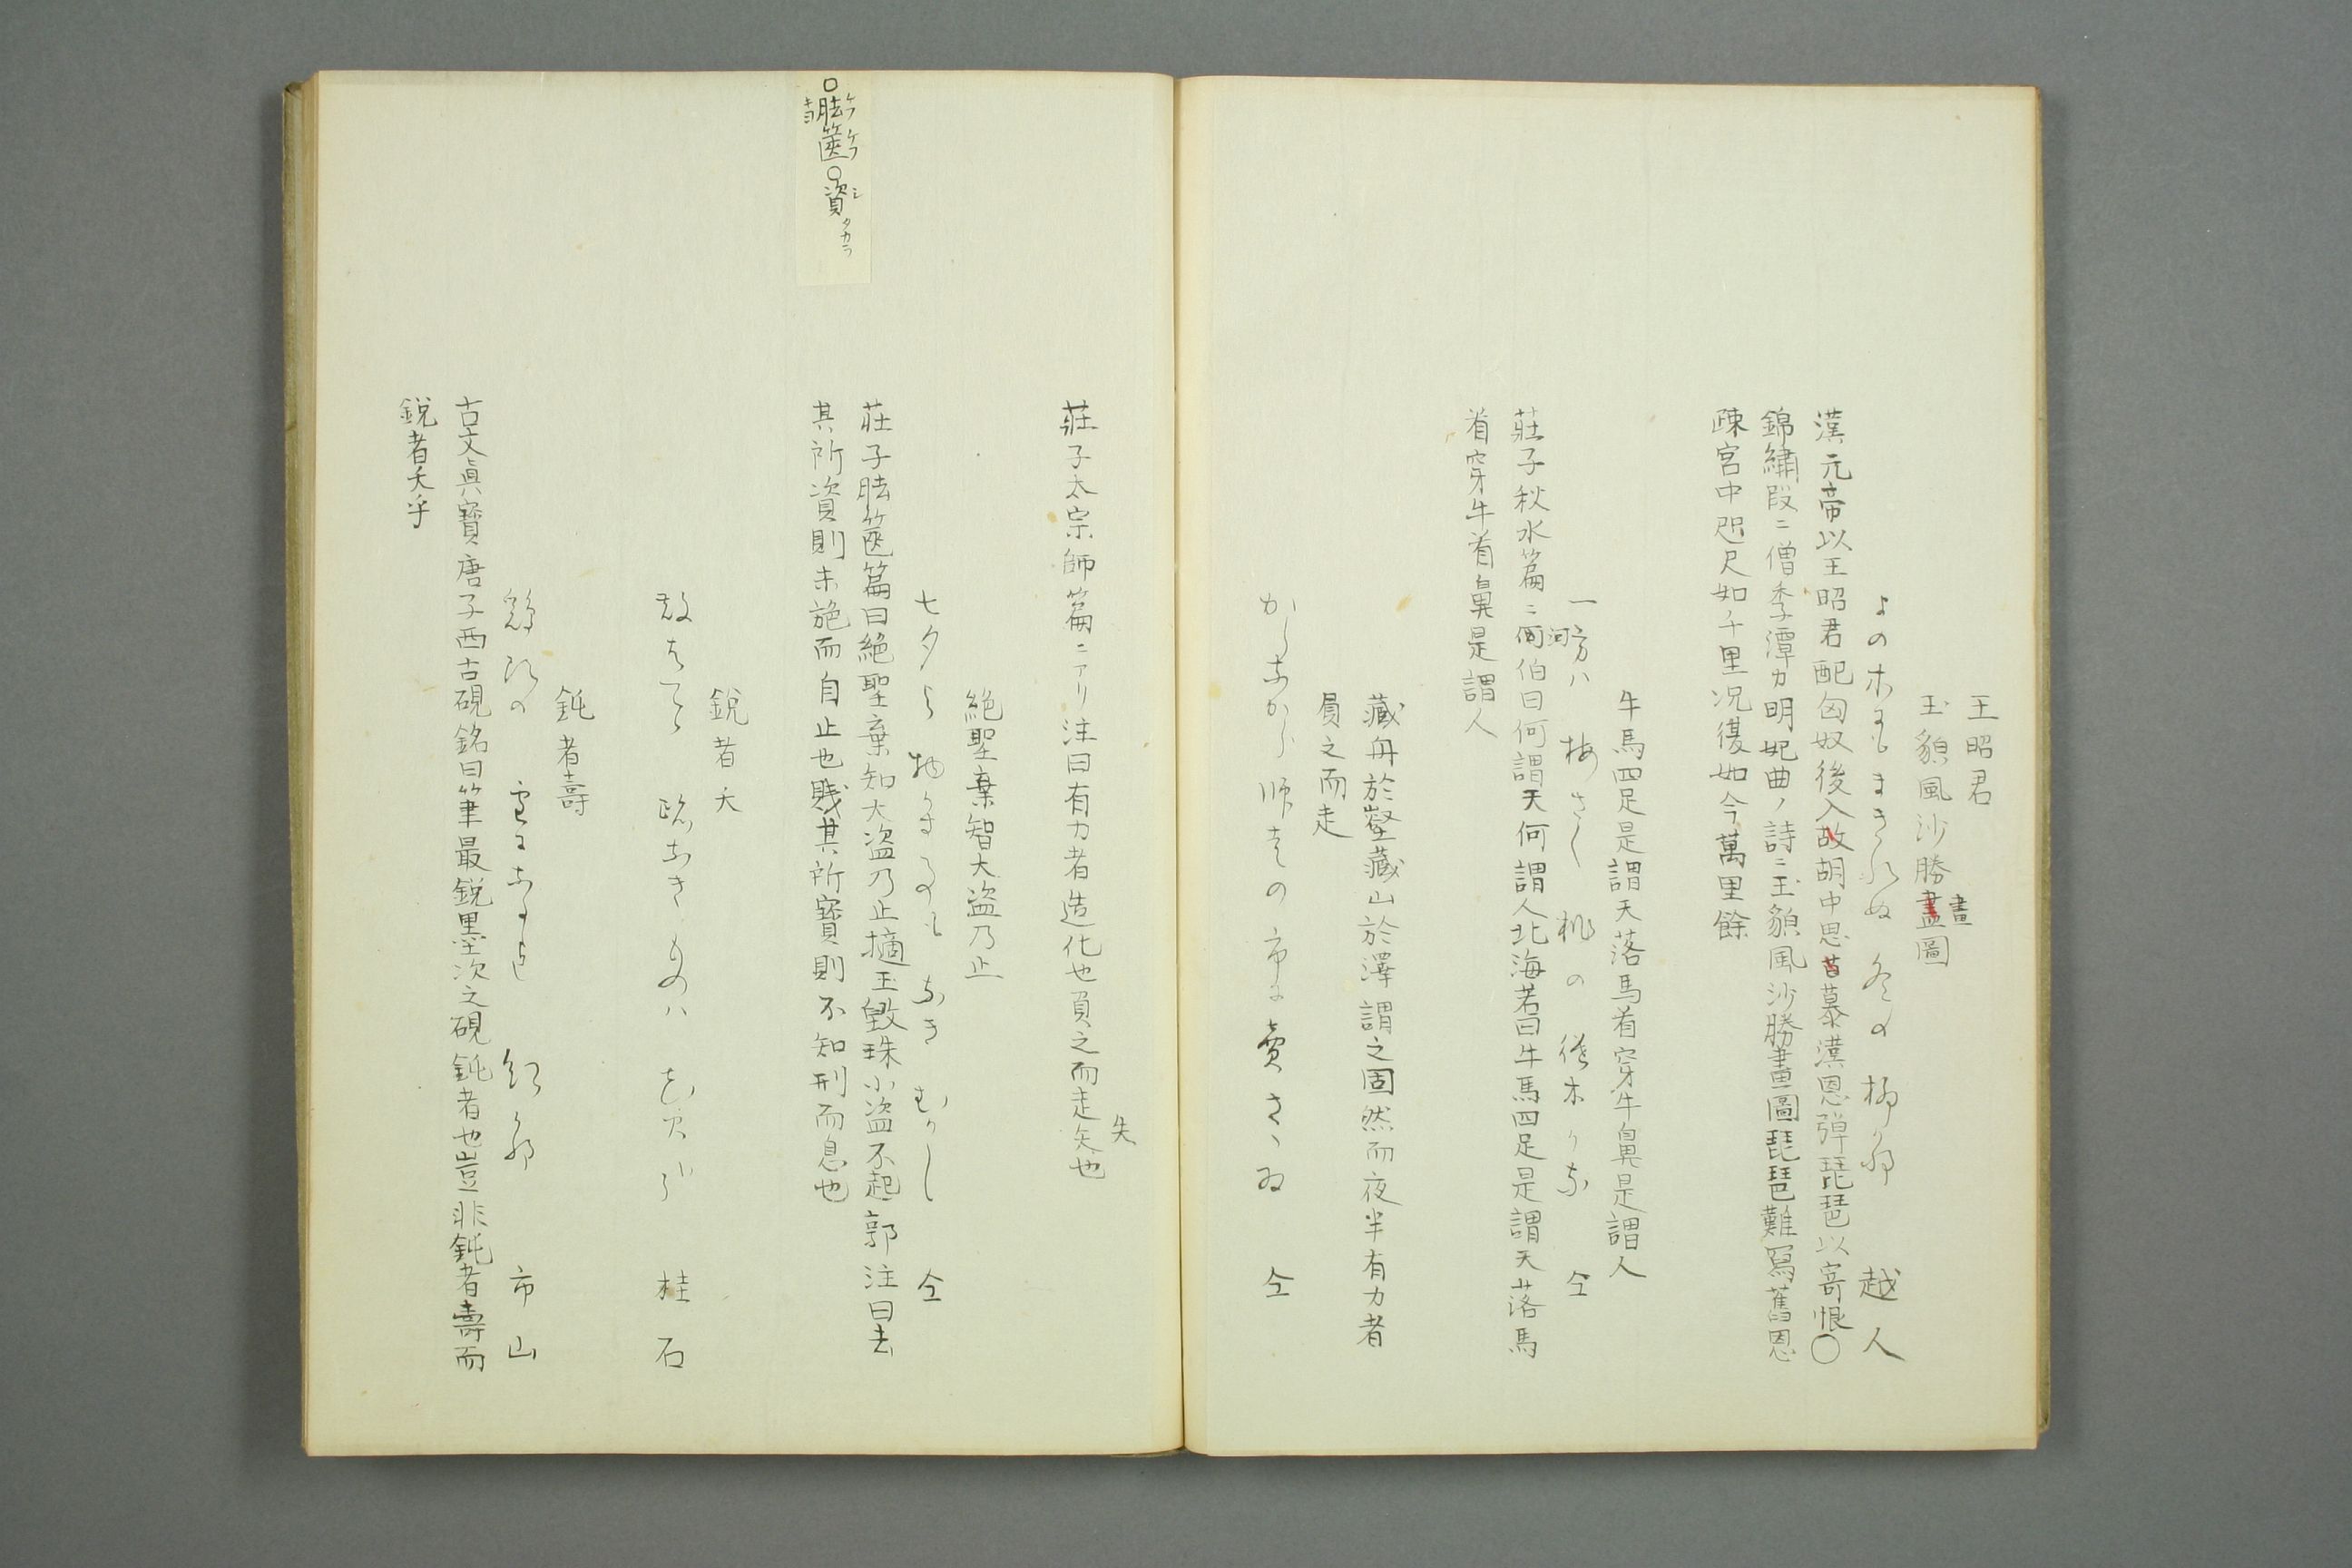 王昭君
玉貌風沙勝盡圖
畫
よの木にもまきれぬ冬の柳かな 越人
漢元帝以王昭君配匈奴後入故胡中思昔慕漢恩弾琵琶以寄恨〇
錦繍段ニ僧季潭カ明妃曲ノ詩ニ玉貌風沙勝畫圖琵琶難寫舊恩
疎宮中咫尺如千里况復如今萬里餘
牛馬四足是謂天落馬首穿牛鼻是謂人
一方ハ梅さく桃の継木かな 仝
莊子秋水篇ニ河伯曰何謂天何謂人北海若曰牛馬四足是謂天落馬
河
首穿牛首鼻是謂人
藏舟於壑藏山於澤謂之固然而夜半有力者
負之而走
からながら師走の市にうるさゝゐ 仝
莊子太宗師篇ニアリ注曰有力者造化也負之而走矢也
失
絶聖棄智大盗乃止
七夕よ物かすこともなきむかし 仝
莊子胠篋篇曰絶聖棄知大盗乃止擿玉毀珠小盗不起郭注曰去
其所資則未施而自止也賤其所寶則不知刑而息也
〇胠篋〇資
ケフ ケフ シ タカラ
キヨ
鋭者夭
散はてゝ跡なきものは花火哉 桂石
鈍者壽
鶏頭の雪になる迄紅かな 市山
古文眞寶唐子西古硯銘曰筆最鋭墨次之硯鈍者也豈非鈍者壽而
鋭者夭乎